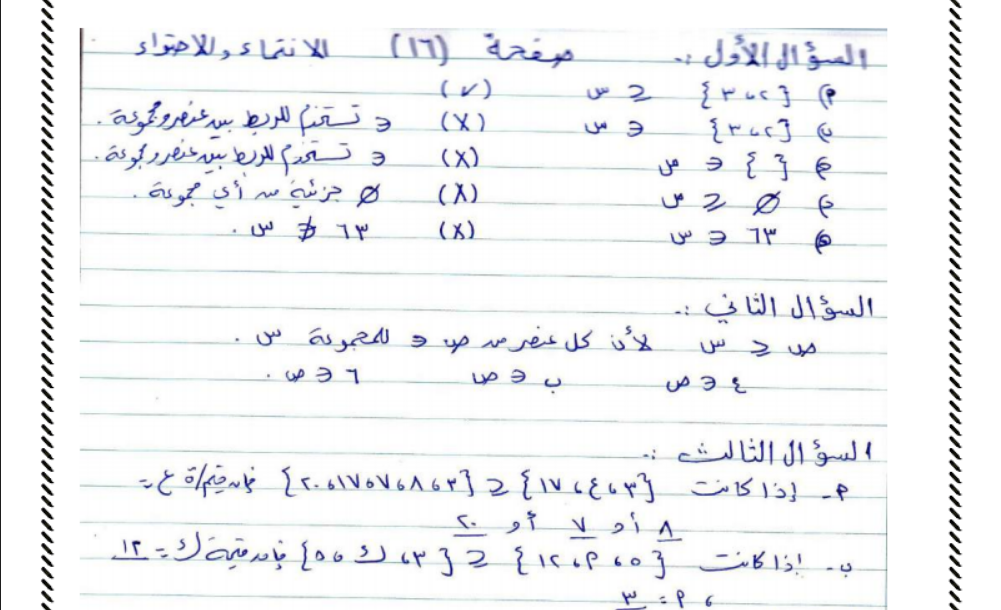 السؤال الأول :. صفحة (١٦) الانتماء والاحتواء
م) {٢، ٣} ⊆ س (✓)
ب) {٢، ٣} ∋ س (X) ∋ تستخدم للربط بين عنصر ومجموعة .
ج) { } ∋ س (X) ∋ تستخدم للربط بين عنصر ومجموعة .
∅ ⊉ س (X) ∅ جزئية من أي مجموعة .
٦٣ ∋ س (X) ٦٣ ∌ س .
السؤال الثاني :.
ص ⊆ س لأن كل عنصر من ص ∋ للمجموعة س .
٤ ∋ ص ب ∋ ص ٦ ∋ ص .
السؤال الثالث :.
م- إذا كانت {٣، ع، ١٧} ⊆ {٣، ٨، ٧، ١٧، ٢٠} فإن قيم/ة ع =
٨ أو ٧ أو ٢٠
ب- إذا كانت {٥، م، ١٢} ⊆ {٣، ك، ٥} فإن قيمة ك = ١٢
، م = ٣